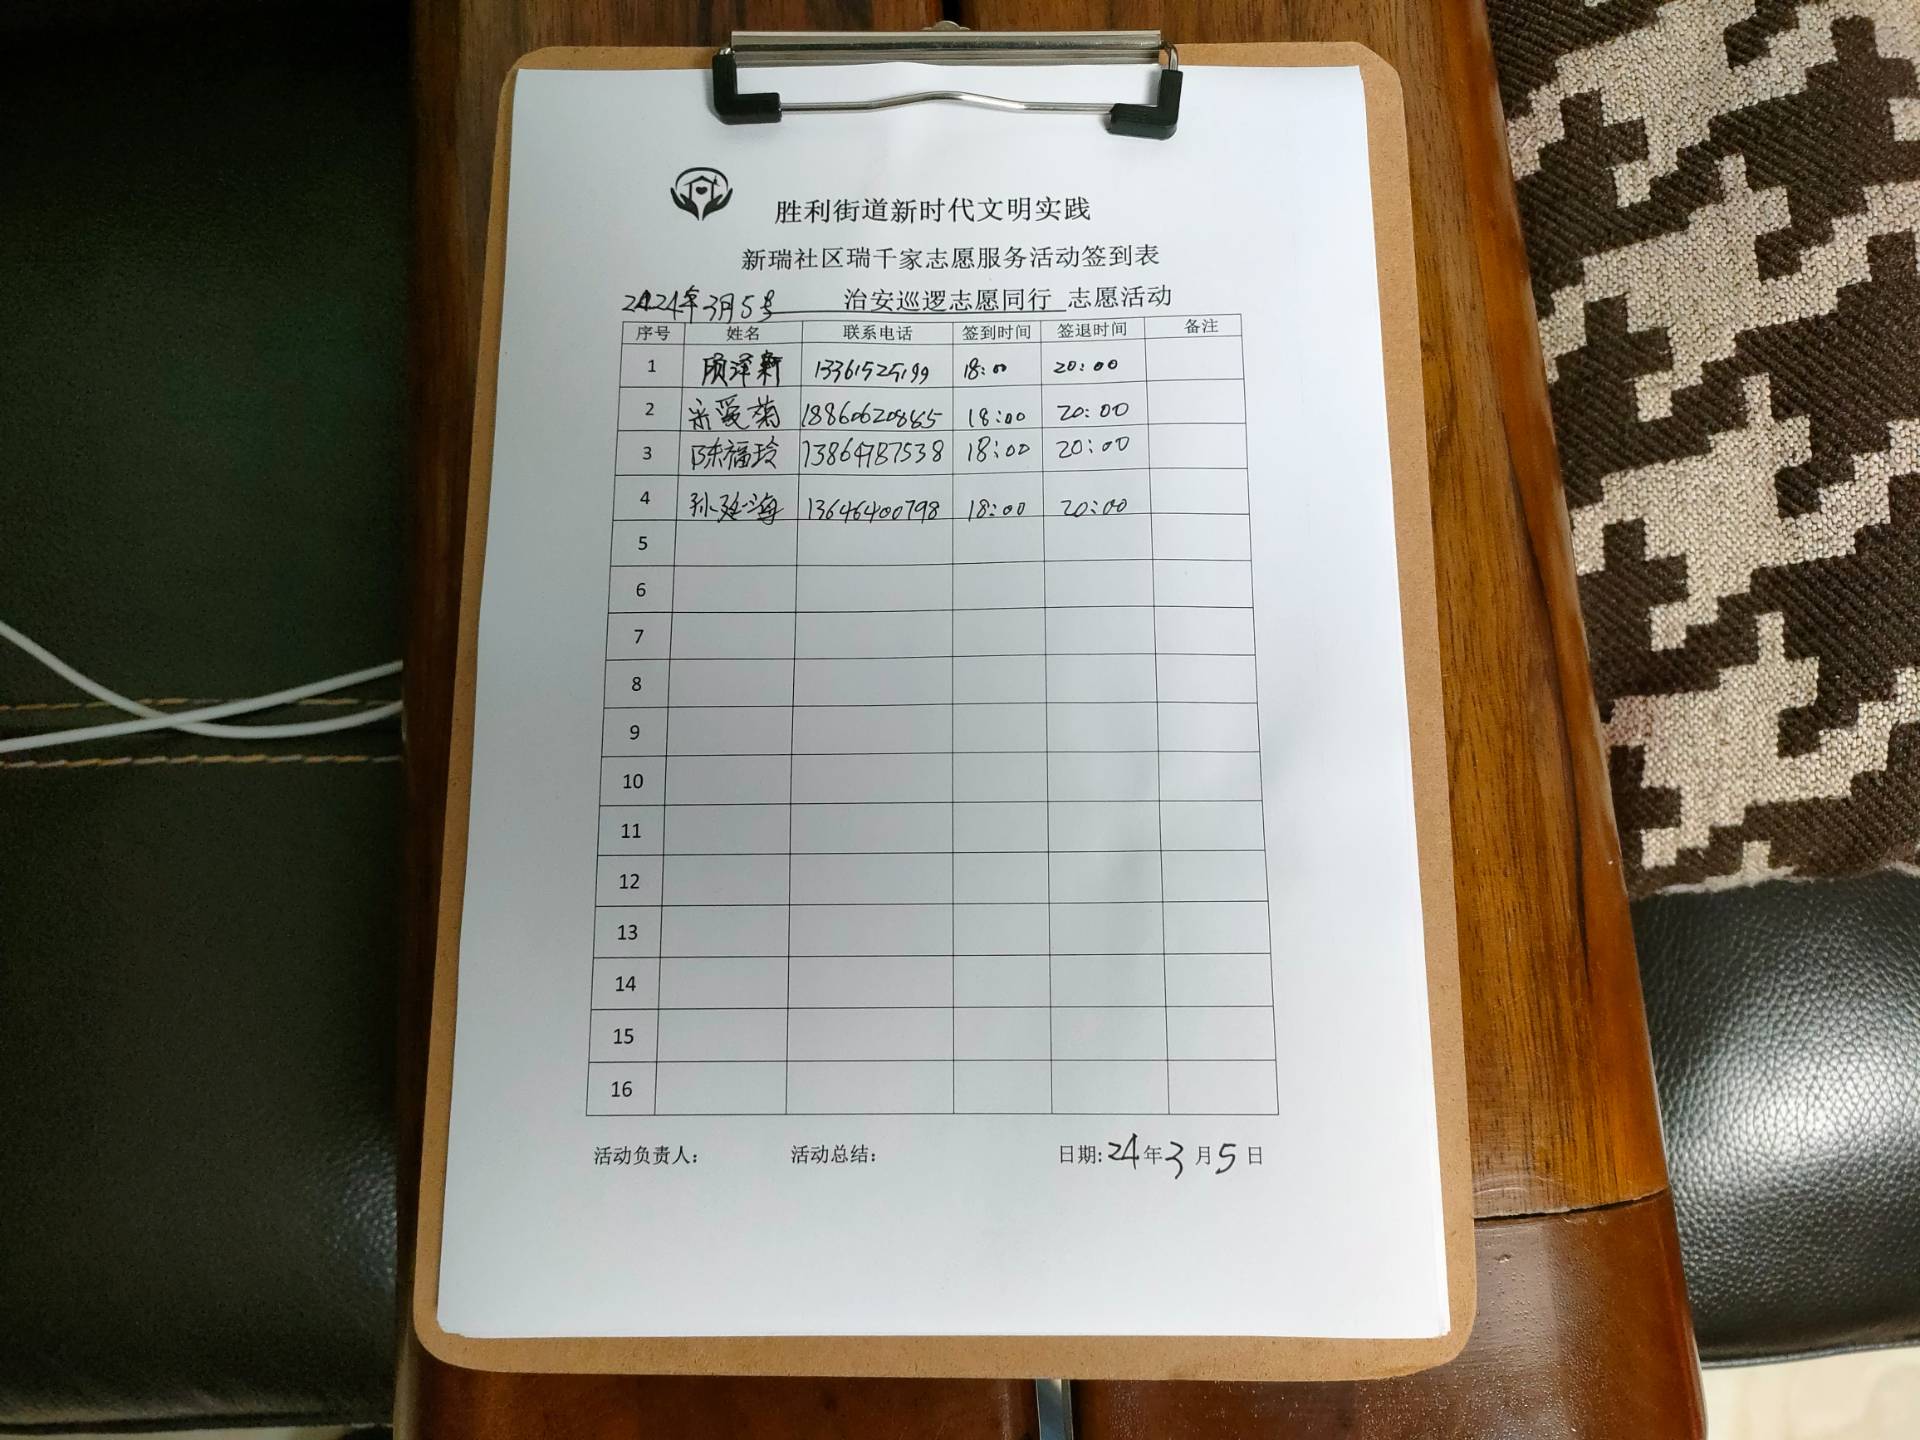 胜利街道新时代文明实践
新瑞社区瑞千家志愿服务活动签到表
2424年3月5号 治安巡逻志愿同行 志愿活动
序号 姓名 联系电话 签到时间 签退时间 备注
1 顾泽新 13361525199 18:00 20:00
2 宋爱菊 18860620865 18:00 20:00
3 陈福玲 13864787538 18:00 20:00
4 孙延海 13646400798 18:00 20:00
5
6
7
8
9
10
11
12
13
14
15
16
活动负责人: 活动总结: 日期:24年3月5日